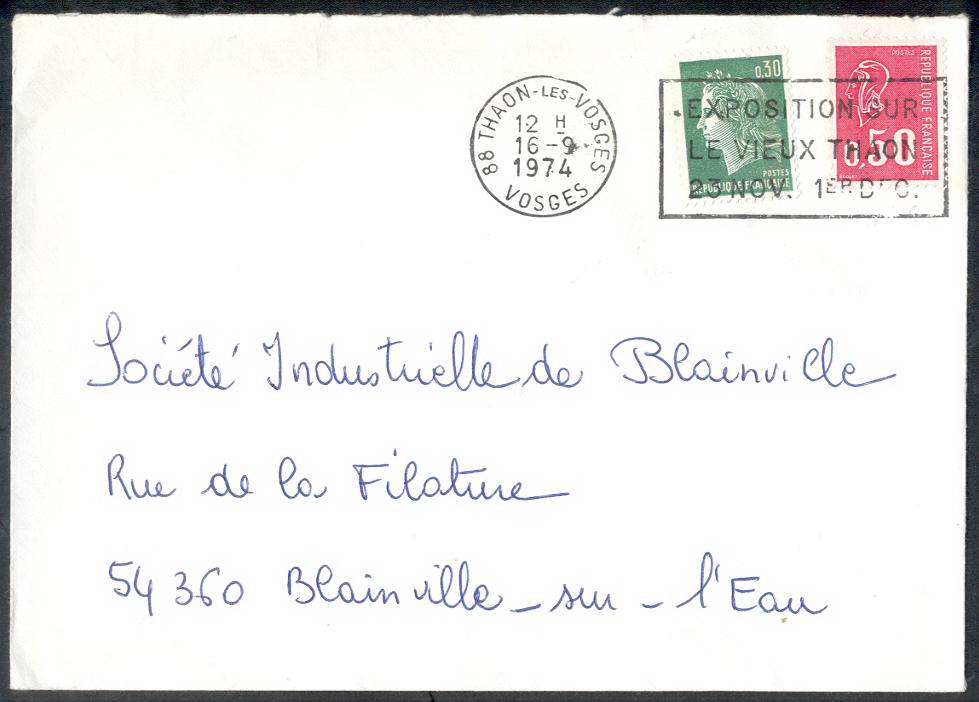 88 THAON-LES-VOSGES
12 H
16-9
1974
VOSGES
0,30
POSTES
REPUBLIQUE FRANÇAISE
POSTES
REPUBLIQUE FRANÇAISE
0,50
EXPOSITION SUR
LE VIEUX THAON
23 NOV. 1ER DEC.
Société Industrielle de Blainville
Rue de la Filature
54360 Blainville-sur-l'Eau